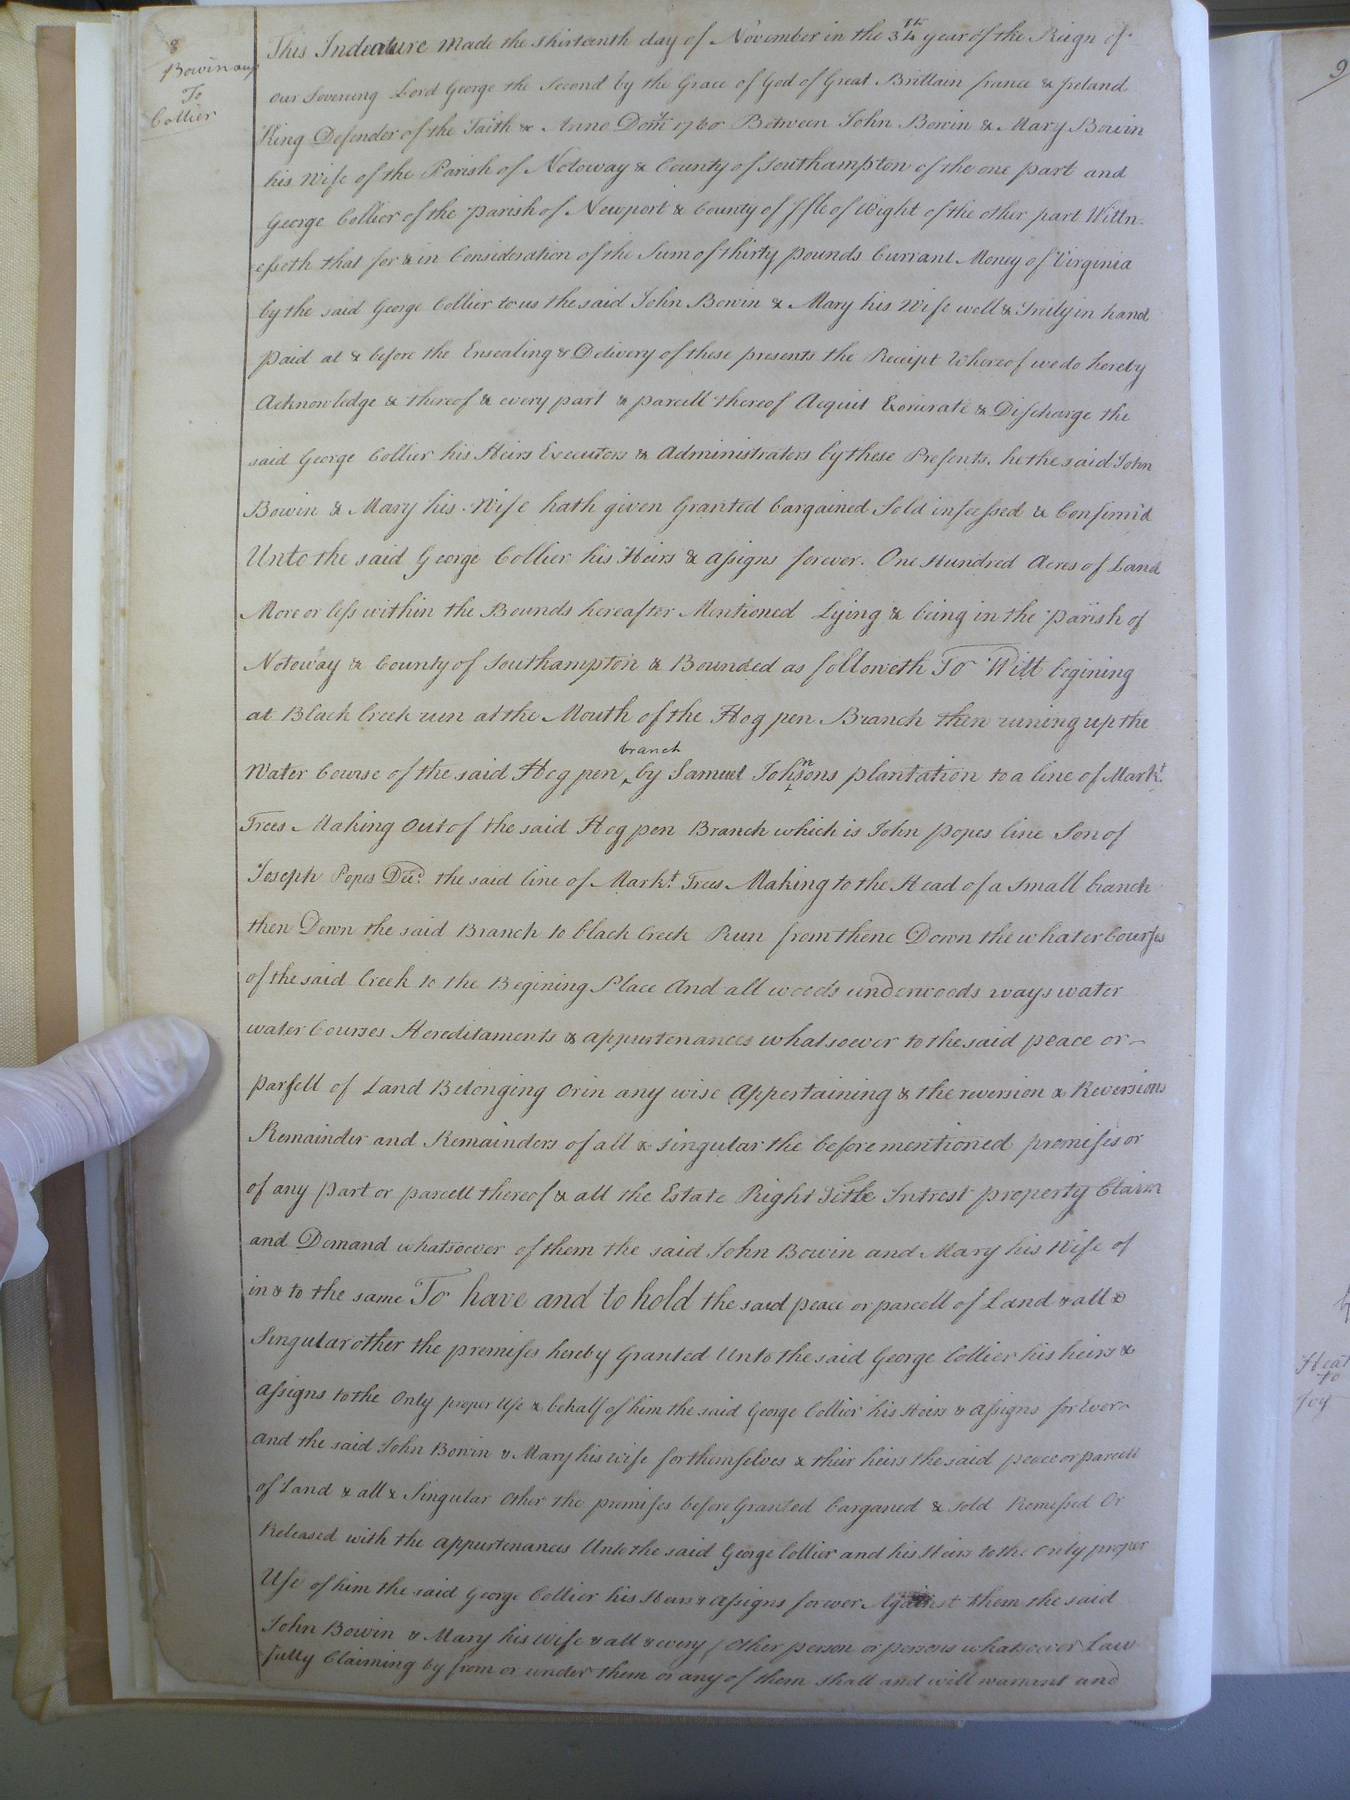 8
Bowin aux
To
Collier
This Indenture Made the thirteenth day of November in the 34th year of the Reign of
our Sovereing Lord George the Second by the Grace of God of Great Brittain france & Ireland
King Defender of the Faith & Anno Domi 1760 Between John Bowin & Mary Bowin
his Wife of the Parish of Notoway & County of Southampton of the one part and
George Collier of the Parish of Newport & County of Isle of Wight of the other part Wittn-
esseth that for & in Consideration of the Sum of thirty pounds Currant Money of Virginia
by the said George Collier to us the said John Bowin & Mary his Wife well & Truly in hand
paid at & before the Ensealing & Delivery of these presents the Receipt Whereof we do hereby
Acknowledge & thereof & every part & parcell thereof Acquit Exonerate & Discharge the
said George Collier his Heirs Executors & Administrators by these Presents. he the said John
Bowin & Mary his Wife hath given Granted bargained Sold infeessed & Confirm'd
Unto the said George Collier his Heirs & assigns forever. One Hundred Acres of Land
More or less within the Bounds hereafter Mentioned Lying & being in the parish of
Notoway & County of Southampton & Bounded as followeth To Witt begining
at Black Creek run at the Mouth of the Hog pen Branch then runing up the
Water Course of the said Hog pen branch by Samuel Johnsons plantation to a line of Markt.
Trees Making Out of the said Hog pen Branch which is John popes line Son of
Joseph Popes Decd. the said line of Markt. Trees Making to the Head of a Small branch
then Down the said Branch to black Creek Run from thenc Down the whater Courses
of the said Creek to the Begining Place And all woods underwoods ways water
water Courses Hereditaments & appurtenances whatsoever to the said peace or
parsell of Land Belonging or in any wise Appertaining & the reversion & Reversions
Remainder and Remainders of all & singular the before mentioned premises or
of any part or parcell thereof & all the Estate Right Title Intrest property Claim
and Demand whatsoever of them the said John Bowin and Mary his Wife of
in & to the same To have and to hold the said peace or parcell of Land & all &
Singular other the premises hereby Granted Unto the said George Collier his heirs &
assigns to the Only proper Use & behalf of him the said George Collier his Heirs & assigns for Ever
and the said John Bowin & Mary his wife for themselves & their heirs the said peace or parcell
of Land & all & Singular Other the premises before Granted barganed & Sold Remessed Or
Released with the appurtenances Unto the said George Collier and his Heirs to the Only proper
Use of him the said George Collier his Heirs & assigns forever Against them the said
John Bowin & Mary his Wife & all & every Other person or persons whatsoever Law
fully Claiming by from or under them or any of them shall and will warrant and
9
Heat
to
Joy